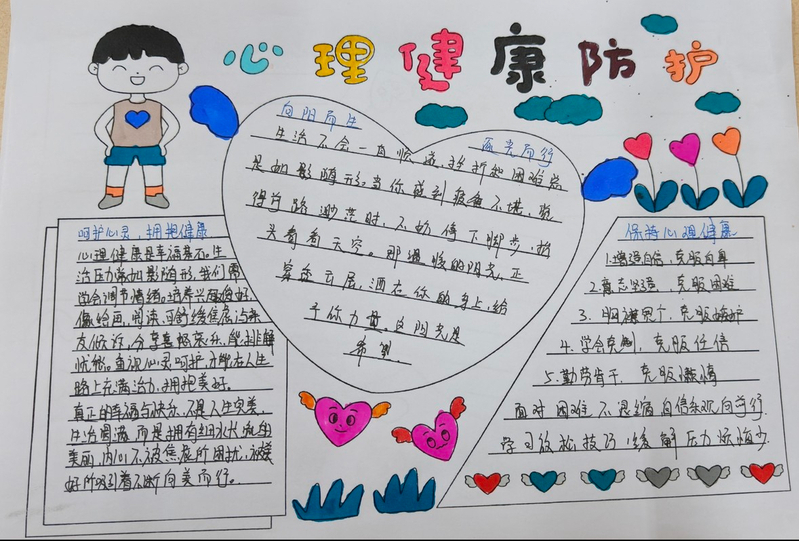 心理健康防护
向阳而生
逐光而行
生活不会一直顺遂,挫折和困难总
是如影随形。当你感到疲惫不堪,觉
得前路渺茫时,不妨停下脚步,抬
头看看天空。那温暖的阳光,正
穿透云层,洒在你的身上,给
予你力量。这阳光是
希望
呵护心灵,拥抱健康
心理健康是幸福基石。生
活压力常如影随形,我们需
学会调节情绪。培养兴趣爱好,
像绘画,阅读,可舒缓焦虑;与亲
友倾诉,分享喜怒哀乐,能排解
忧愁。重视心灵呵护,才能在人生
路上充满活力,拥抱美好。
真正的幸福与快乐,不是人生完美,
生活圆满,而是拥有细水长流的
美丽,内心不被焦虑所困扰,被美
好所吸引着不断向美而行。
保持心理健康
1.增强自信,克服自卑
2.意志坚强,克服困难
3.胸襟宽广,克服嫉妒
4.学会克制,克服任性
5.勤劳肯干,克服懒惰
面对困难不退缩自信乐观向前行
学习放松技巧,缓解压力烦恼少